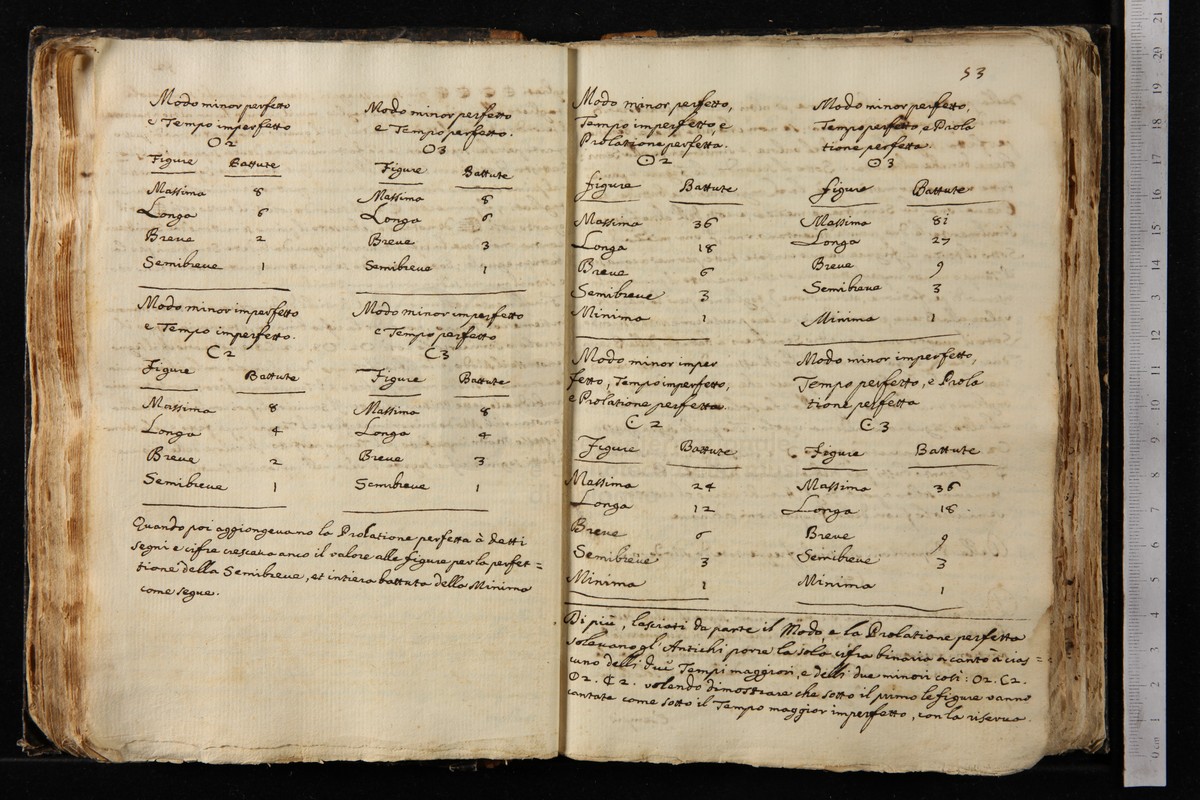 Modo minor perfetto
e Tempo imperfetto
O2
Figure Battute
Massima 8
Longa 6
Breve 2
Semibreve 1
Modo minor perfetto
e Tempo perfetto.
O3
Figure Battute
Massima 8
Longa 6
Breve 3
Semibreve 1
Modo minor imperfetto
e Tempo imperfetto.
C2
Figure Battute
Massima 8
Longa 4
Breve 2
Semibreve 1
Modo minor imperfetto
e Tempo perfetto
C3
Figure Battute
Massima 8
Longa 4
Breve 3
Semibreve 1
Quando poi aggiongevano la Prolatione perfetta à detti
segni e cifre cresceva anco il valore alle figure per la perfet=
tione della Semibreve, et intiera battuta della Minima
come segue.
53
Modo minor perfetto,
Tempo imperfetto, e
Prolatione perfetta.
⊙2
Figure Battute
Massima 36
Longa 18
Breve 6
Semibreve 3
Minima 1
Modo minor perfetto,
Tempo perfetto, e Prola
tione perfetta.
⊙3
Figure Battute
Massima 81
Longa 27
Breve 9
Semibreve 3
Minima 1
Modo minor imper
fetto, Tempo imperfetto,
e Prolatione perfetta.
C·2
Figure Battute
Massima 24
Longa 12
Breve 6
Semibreve 3
Minima 1
Modo minor imperfetto,
Tempo perfetto, e Prola
tione perfetta
C·3
Figure Battute
Massima 36
Longa 18.
Breve 9
Semibreve 3
Minima 1
Di più, lasciati da parte il Modo, e la Prolatione perfetta
solevano gl'Antichi porre la sola cifra binaria a canto à cias=
cuno delli due Tempi maggiori, e delli due minori così: O2. C2.
Φ2. ¢2. volendo dimostrare che sotto il primo le figure vanno
cantate come sotto il Tempo maggior imperfetto, con la riserva
0 cm 1 2 3 4 5 6 7 8 9 10 11 12 13 14 15 16 17 18 19 20 21